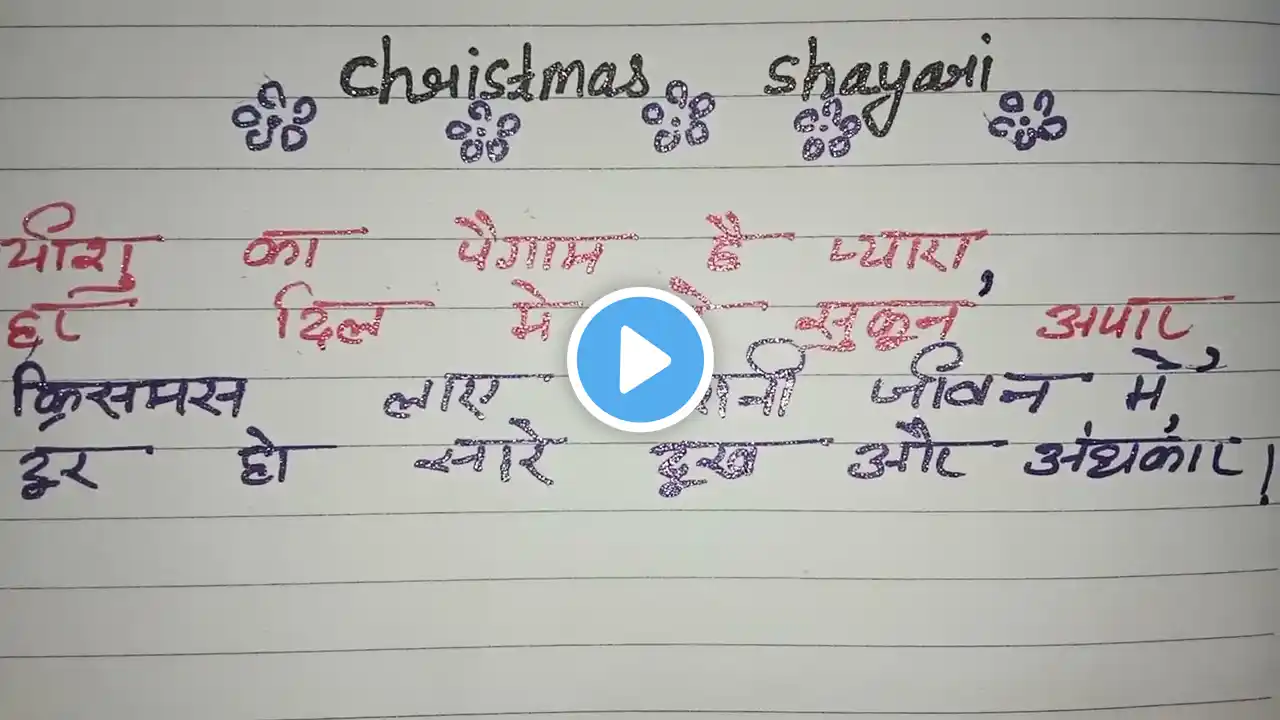 Christmas shayari
यीशु का पैगाम है प्यारा,
हर दिल मे सुकून अपार
क्रिसमस लाए जीवन में,
दूर हो सारे दूख और अंधकार।